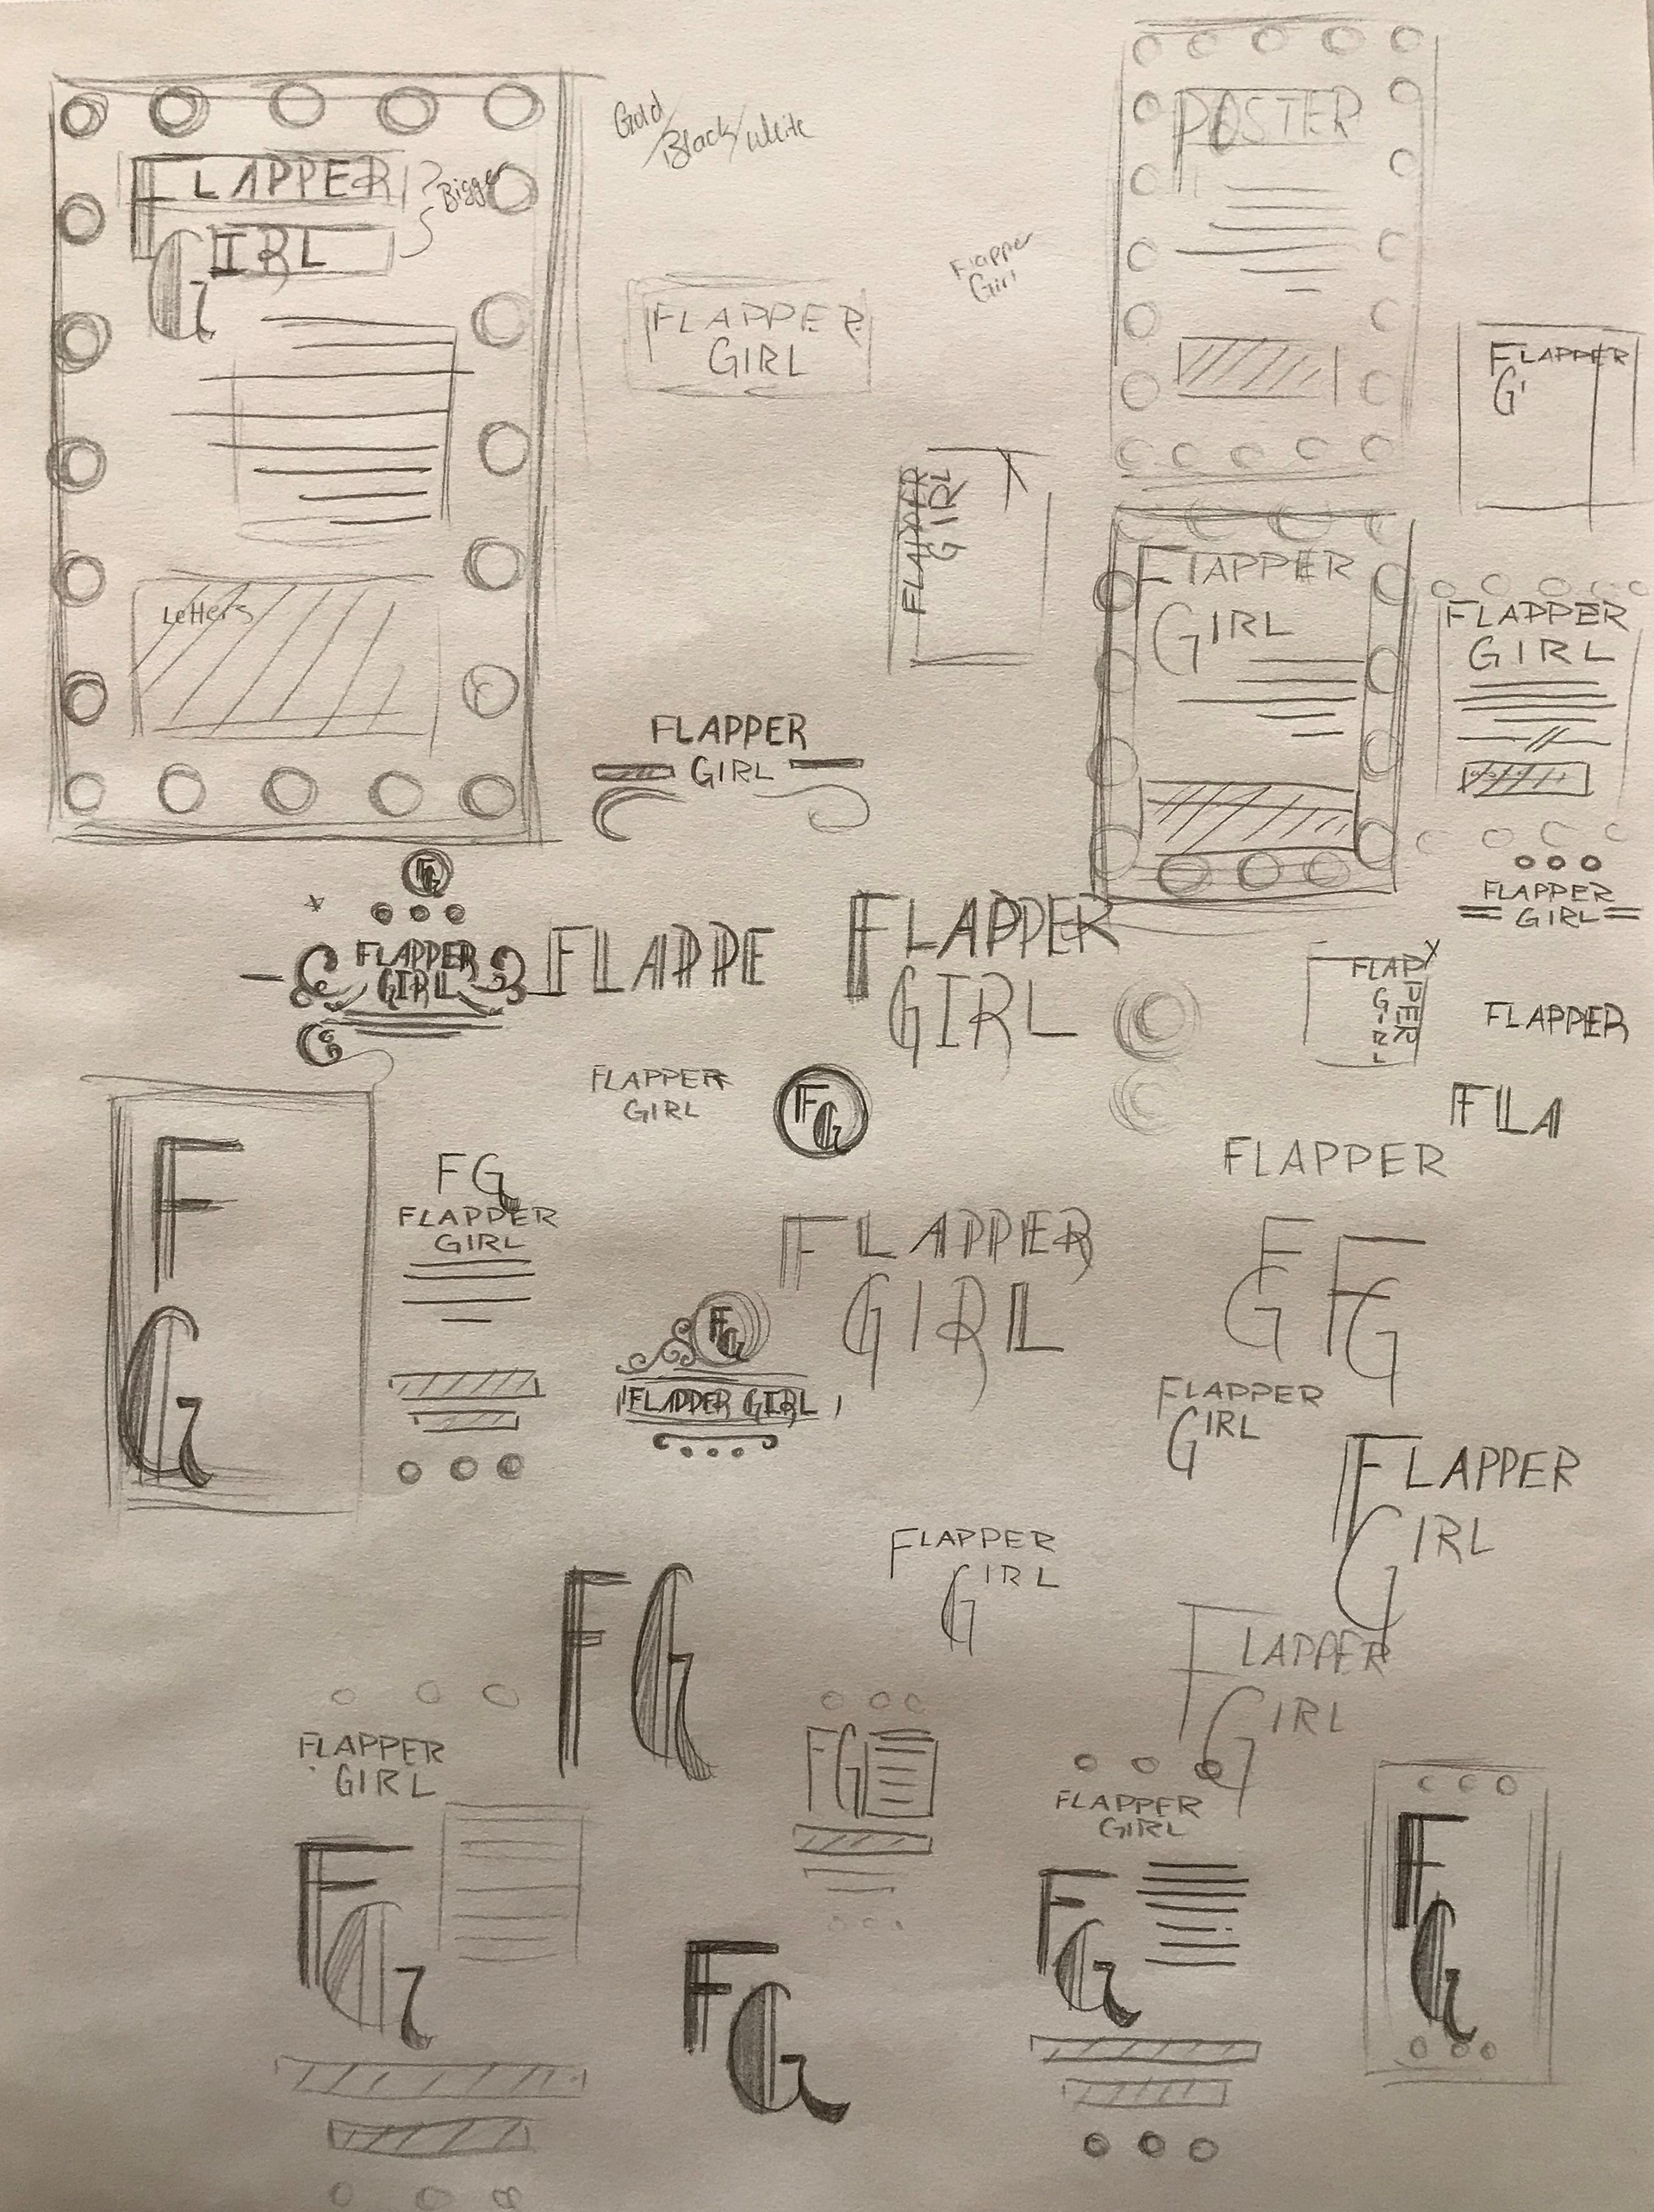 Gold
/Black/White
FLAPPER
GIRL
POSTER
FLAPPER
GIRL
Flapper
Girl
FLAPPER
G
FLAPPER
GIRL
FLAPPER
GIRL
FLAPPER
GIRL
Letters
FLAPPER
GIRL
FG
FLAPPER
GIRL
FLAPPER
GIRL
FLAPPE
FLAPPER
GIRL
FLAPPER
FLAPPER
GIRL
FG
FLA
FLAPPER
F
G
FG
FLAPPER
GIRL
FLAPPER
GIRL
FG
FG
FG
FLAPPER GIRL
FLAPPER
GIRL
FLAPPER
GIRL
FLAPPER
GIRL
FG
FLAPPER
GIRL
FLAPPER
GIRL
FG
FLAPPER
GIRL
FG
FG
FG
FG